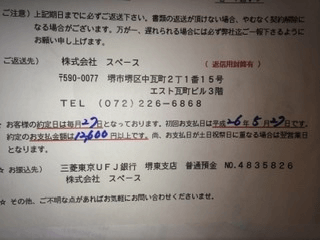 ご注意）上記期日までに必ずご返送下さい、書類の返送が頂けない場合、やむなく契約解除に
なる場合がございます。万が一、遅れられる場合には必ず弊社迄ご一報下さるように
お願い申し上げます。
ご返送先）　株式会社　スペース　（返信用封筒有）
〒590-0077　堺市堺区中瓦町2丁1番15号
エスト瓦町ビル3階
TEL　(072)226-6868
★ お客様の約定日は毎月27日となっております。初回お支払日は平成26年5月27日です。
約定のお支払金額は12,600円以上です。尚、お支払日が土日祝祭日に重なる場合は翌営業日
となります。
★ お振込先）　三菱東京UFJ銀行　堺東支店　普通預金　NO.4835826
株式会社　スペース
★ その他、ご不明な点があればお気軽にお問い合わせください。